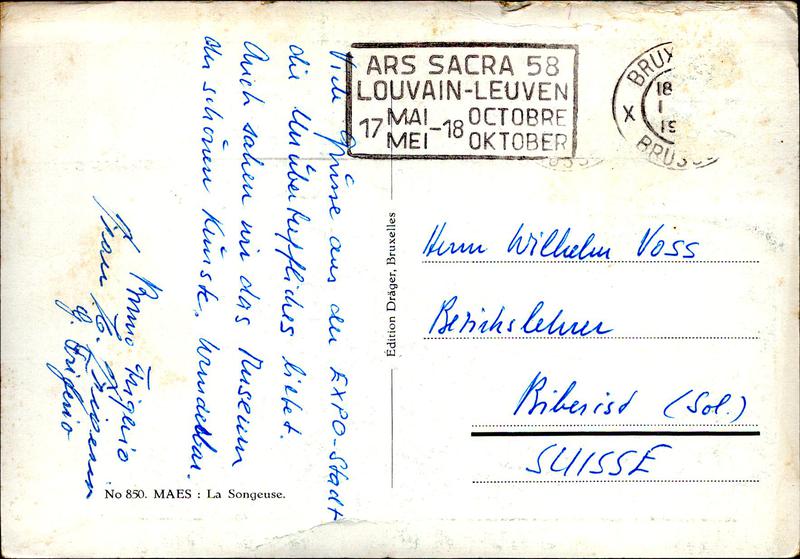 Viele Grüsse aus der EXPO-Stadt
die Unübertreffliches bietet.
Auch sahen wir das Museum
der schönen Künste. Wunderbar.
Bruno Frigerio
ARS SACRA 58
LOUVAIN-LEUVEN
17 MAI - 18 OCTOBRE
MEI OKTOBER
BRUX
18
1
19
X
BRUSS
Edition Dräger, Bruxelles
Herrn Wilhelm Voss
Bezirkslehrer
Biberist (Sol.)
SUISSE
No 850. MAES : La Songeuse.